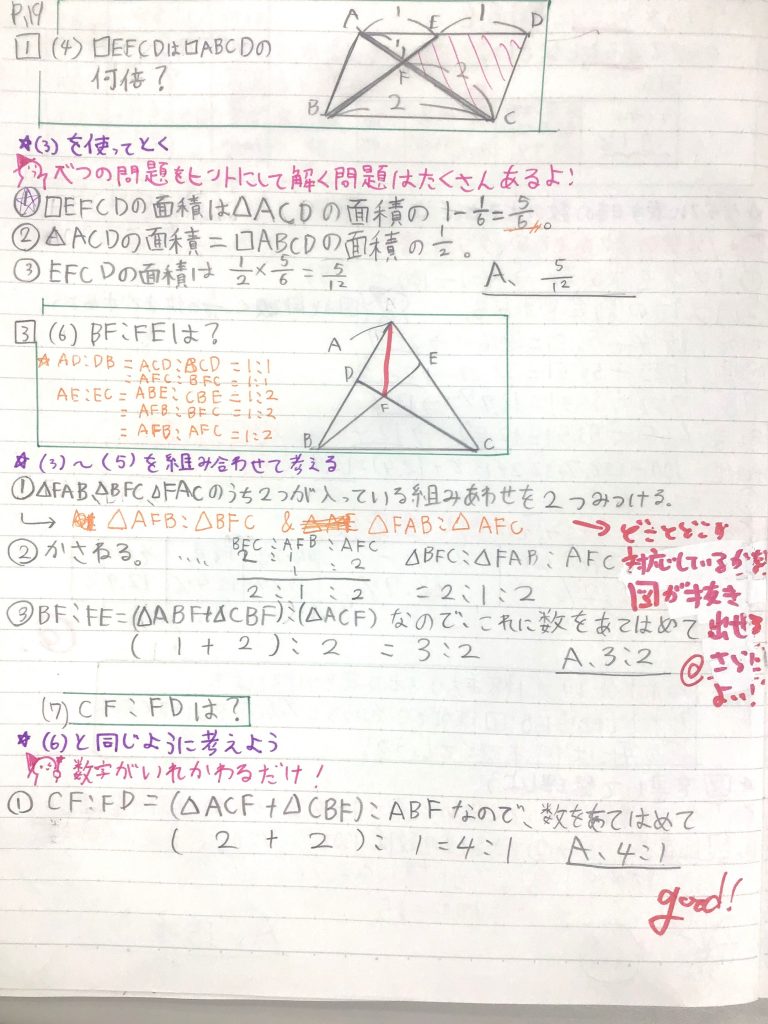 P.19
1 (4) □EFCDは□ABCDの
何倍？
A 1 E 1 D
1 F 2
B 2 C
☆(3)を使ってとく
べつの問題をヒントにして解く問題はたくさんあるよ！
① □EFCDの面積は△ACDの面積の 1-1/6=5/6。
② △ACDの面積=□ABCDの面積の1/2。
③ EFCDの面積は 1/2×5/6=5/12 A、5/12
3 (6) BF:FEは？
☆ AD:DB=ACD:BCD=1:1
=AFC:BFC=1:1
AE:EC=ABE:CBE=1:2
=AFB:BFC=1:2
=AFB:AFC=1:2
A
A
D E
F
B C
☆(3)〜(5)を組み合わせて考える
①△FAB、△BFC、△FACのうち2つが入っている組みあわせを2つみつける。
↳ △AFB:△BFC & △FAB:△AFC
→どことどこが
対応しているかを
図が抜き
出せると
さらに
よい！
②かさねる。 ....
BFC:AFB:AFC
2 : 1
1 : 2
2 : 1 : 2
△BFC:△FAB:AFC
=2:1:2
③BF:FE=(△ABF+△CBF):(△ACF)なので、これに数をあてはめて
(1+2):2 =3:2 A、3:2
(7) CF:FDは？
☆(6)と同じように考えよう
数字がいれかわるだけ！
① CF:FD=(△ACF+△CBF):ABFなので、数をあてはめて
(2+2):1=4:1 A、4:1
good!